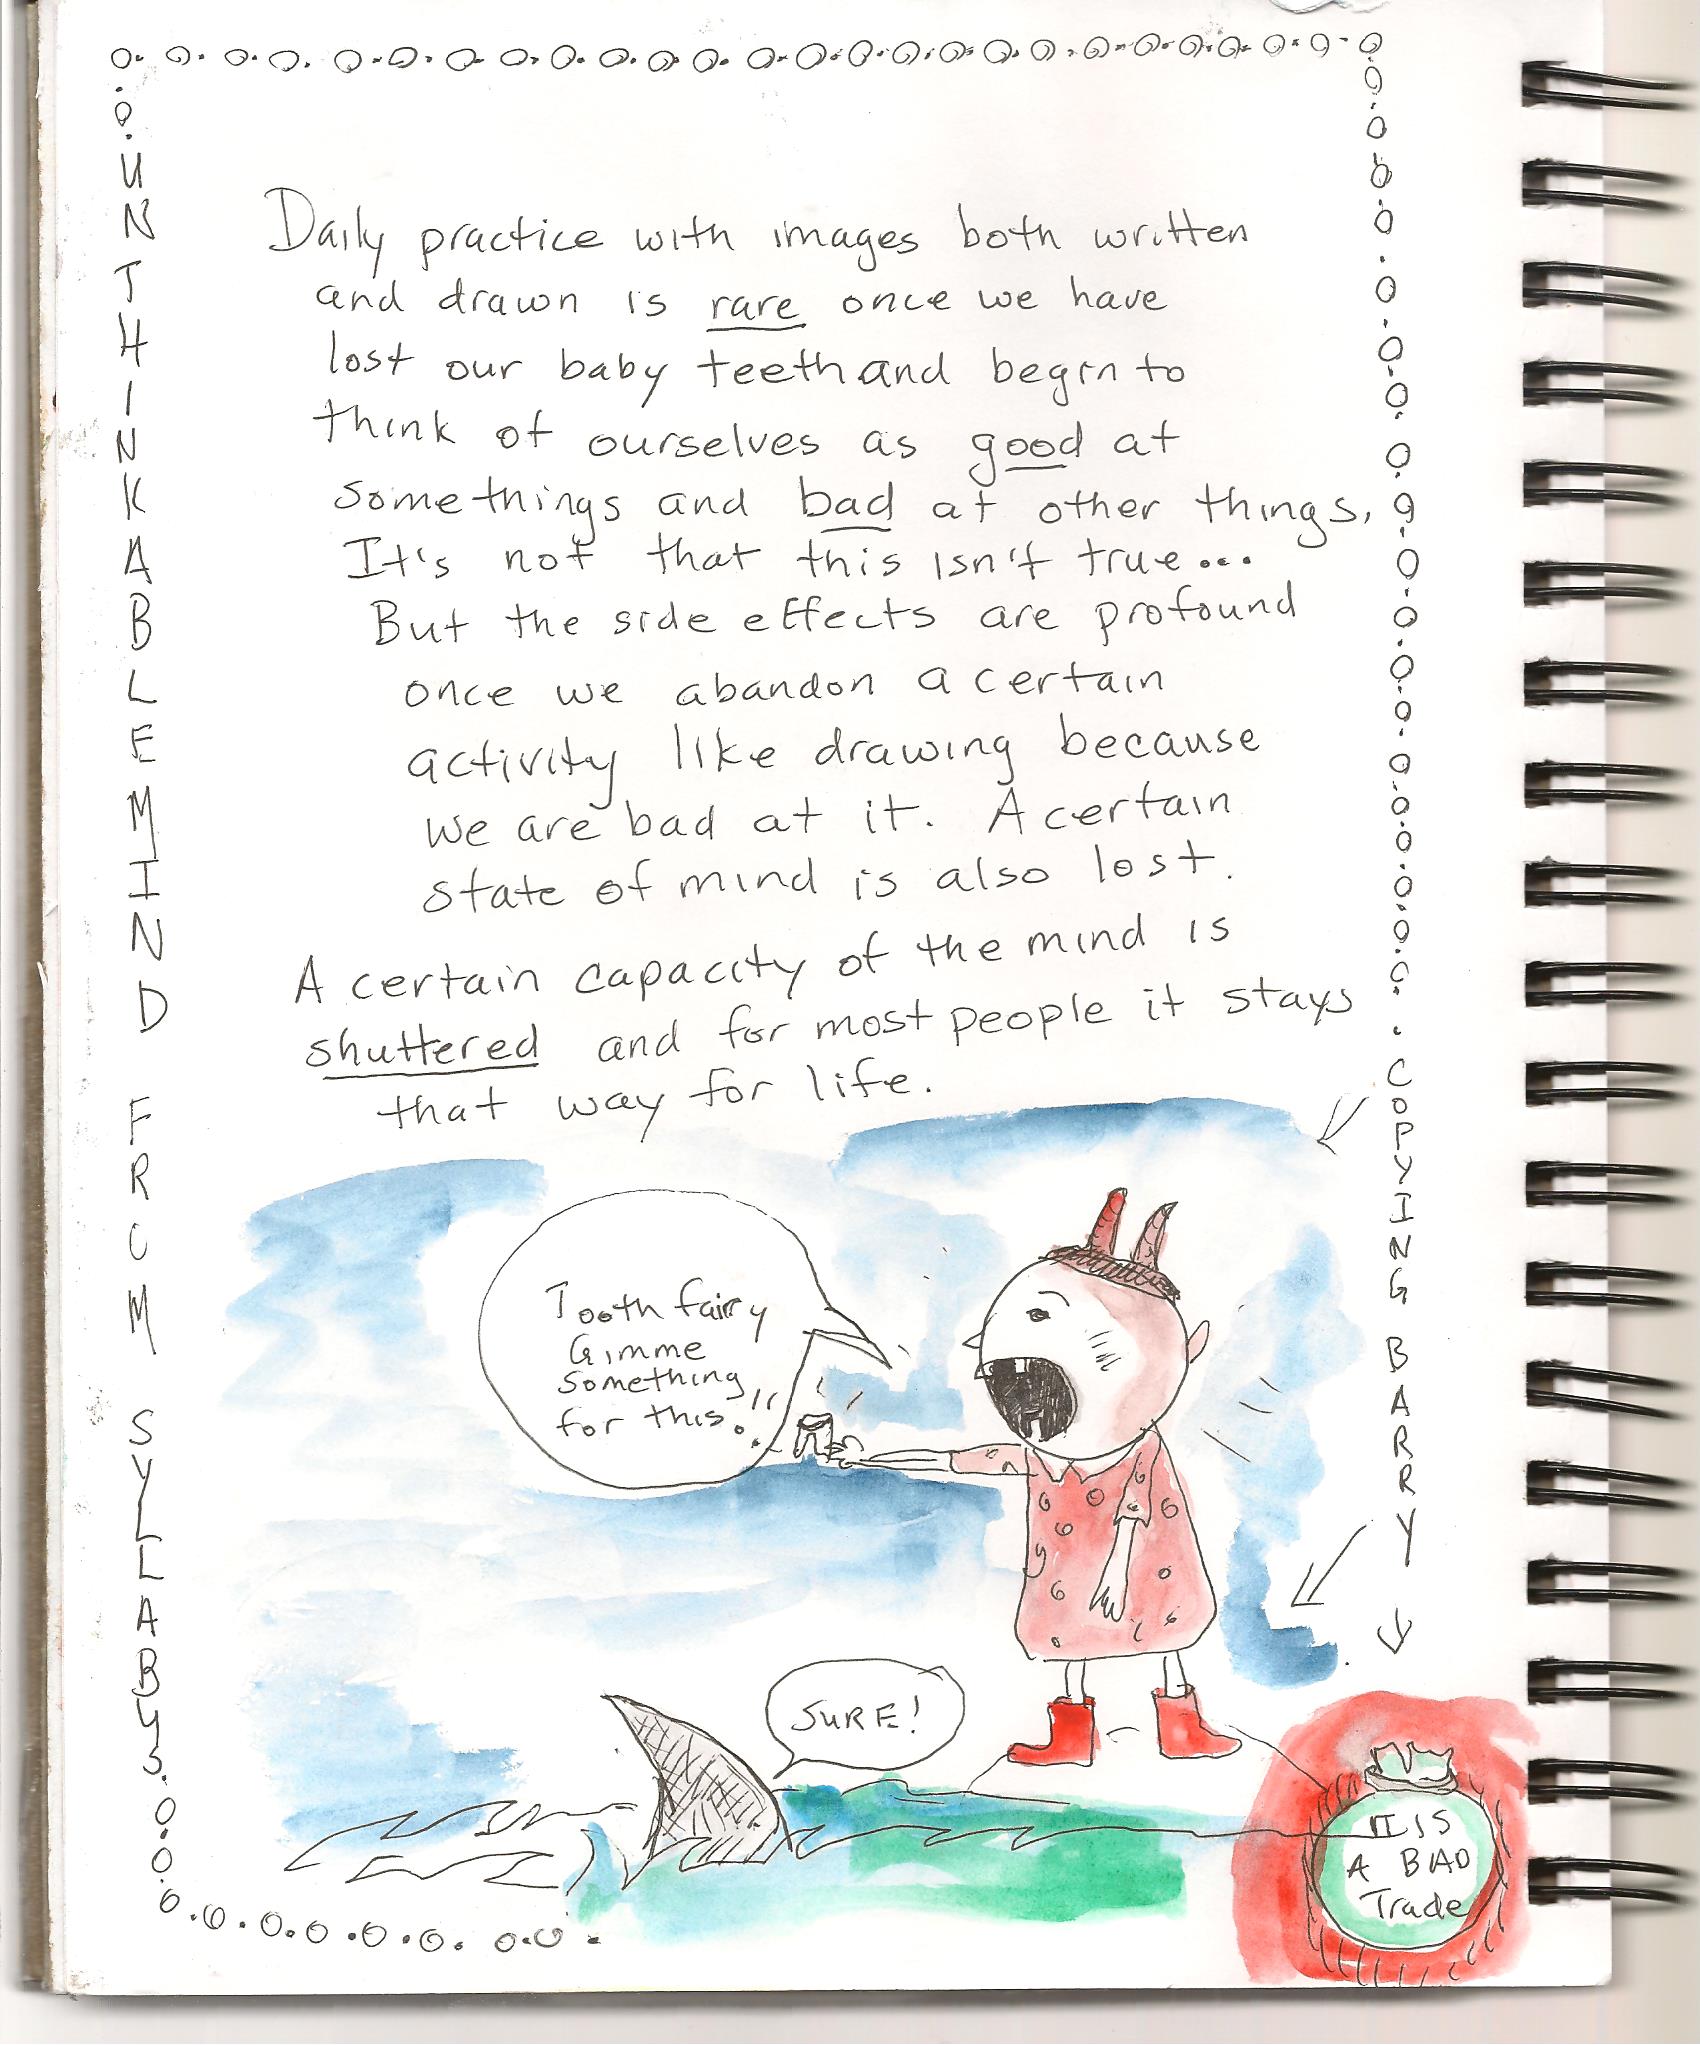 UNTHINKABLE MIND FROM SYLLABUS
Daily practice with images both written
and drawn is rare once we have
lost our baby teeth and begin to
think of ourselves as good at
some things and bad at other things.
It's not that this isn't true...
But the side effects are profound
once we abandon a certain
activity like drawing because
we are bad at it. A certain
state of mind is also lost.
A certain capacity of the mind is
shuttered and for most people it stays
that way for life.
COPYING BARRY
Tooth fairy
Gimme
something
for this!!
SURE!
IT IS
A BAD
Trade